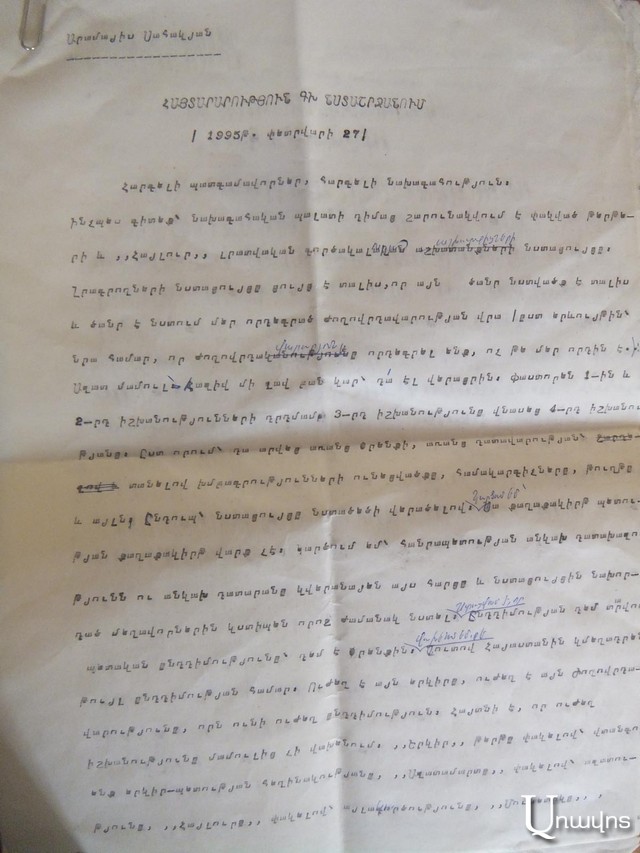 Արամայիս Սահակյան
ՀԱՅՏԱՐԱՐՈՒԹՅՈՒՆ ԳԽ ՆՍՏԱՇՐՋԱՆՈՒՄ
/ 1995թ. փետրվարի 27/
Հարգելի պատգամավորներ, հարգելի նախագահություն:
Ինչպես գիտեք՝ նախագահական պալատի դիմաց շարունակվում է փակված թերթե-
րի և ,,Հայլուր,, լրատվական գործակալության աշխատակիցների նստացույցը:
Լրագրողների նստացույցը ցույց է տալիս, որ այն ծանր նստվածք է տալիս
և ծանր է նստում մեր որդեգրած ժողովրդավարության վրա /ըստ երևույթին՝
նրա համար, որ ժողովրդավարությունը որդեգրել ենք, ոչ թե մեր որդին է./
Ազատ մամուլ կազիվ մի լավ բան կար՝ դա էլ վերացրին: Փաստորեն 1-ին և
2-րդ իշխանությունների դրդմամբ 3-րդ իշխանությունը վնասեց 4-րդ իշխանու
թյանը: Ըստ որում՝ դա արվեց առանց օրենքի, առանց դատավարության՝
տանելով խմբագրությունների ունեցվածքը, համակարգիչները, թուղթը
և այլն: Ընդուպ՝ նստացույցը նստածեծի վերածելով: Դարձած եմ՝ սա քաղաքակիրթ պետու-
թյան քաղաքակիրթ վարք չէ: Կարծում եմ՝ հանրապետության անկախ դատախազու
թյունն ու անկախ դատարանը կվերանայեն այս հարցը և նստացույցին նախոր-
դած մեղավորներին կստիպեն որոշ ժամանակ նստել: Ընդդիմության դեմ տարվող
պետական ընդդիմությունը՝ դեմ է օրենքին: Շուտով Հայաստանին կմեղադրեն
թույլ ընդդիմության համար: Ուժեղ է այն երկիրը, ուժեղ է այն ժողովրդա-
վարությունը, որն ունի ուժեղ ընդդիմություն: Հայտնի է, որ ուժեղ
իշխանությունը մամուլից չի վախենում: ,,Երկիր,, թերթը փակելով՝ վտանգում
ենք երկիր-պետության հեղինակությանը, ,,Ազատամարտը,, փակելով՝ ազատու-
թյունը, ,,Հայլուրը,, փակելով՝ այլակարծությունը,
Առավոտ